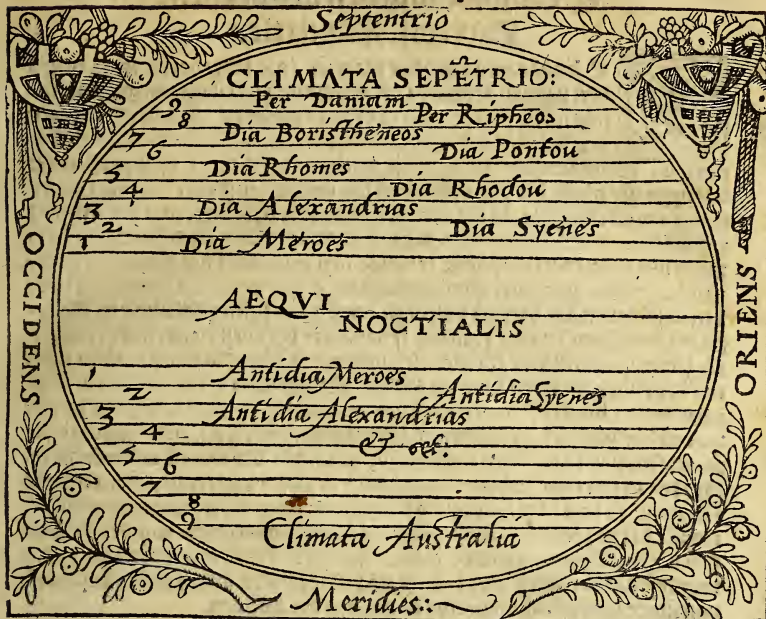 Septentrio
CLIMATA SEPẼTRIO:
9 Per Daniam
8 Per Ripheos
7 Dia Boristheneos
6 Dia Pontou
5 Dia Rhomes
4 Dia Rhodou
3 Dia Alexandrias
2 Dia Syenes
1 Dia Meroes
OCCIDENS
ORIENS
AEQVI
NOCTIALIS
1 Antidia Meroes
2 Antidia Syenes
3 Antidia Alexandrias
4
&
5
6
7
8
9
Climata Australia
Meridies:~